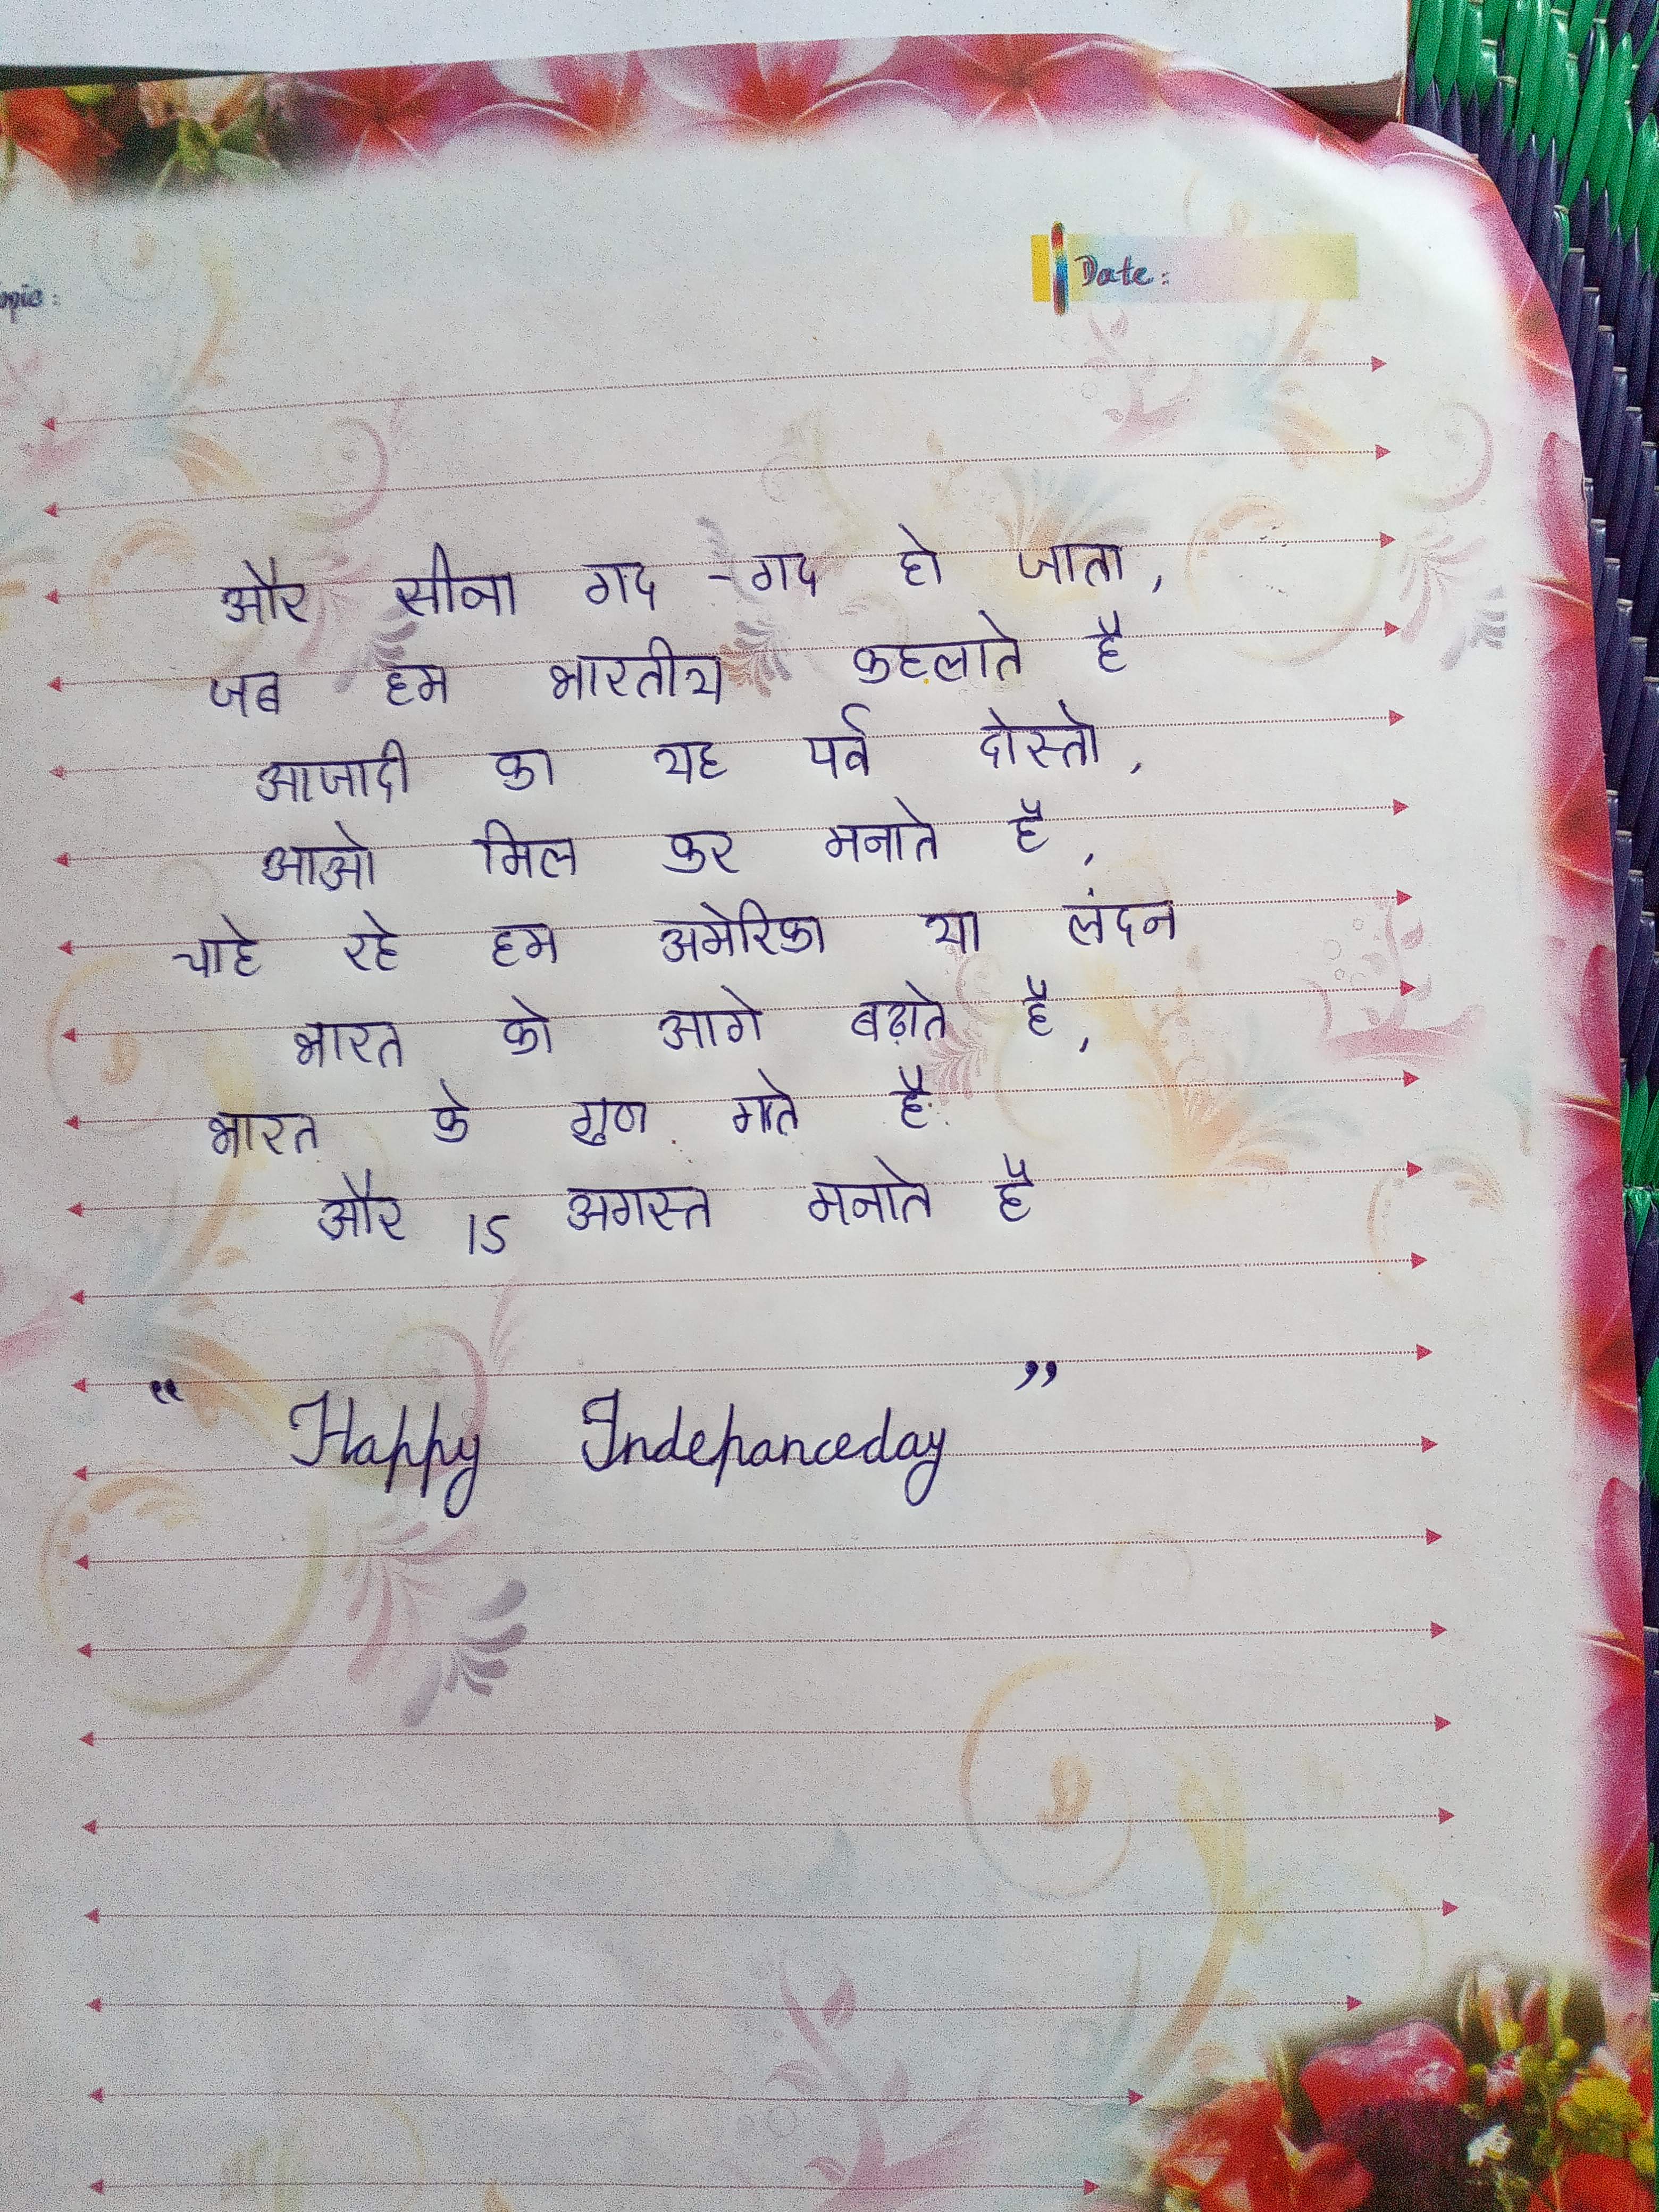 opic :
Date :
और सीना गद - गद हो जाता,
जब हम भारतीय कहलाते है
आजादी का यह पर्व दोस्तो,
आओ मिल कर मनाते है,
चाहे रहे हम अमेरिका या लंदन
भारत को आगे बढ़ाते है,
भारत के गुण गाते है
और 15 अगस्त मनाते है
“ Happy Indepanceday ”